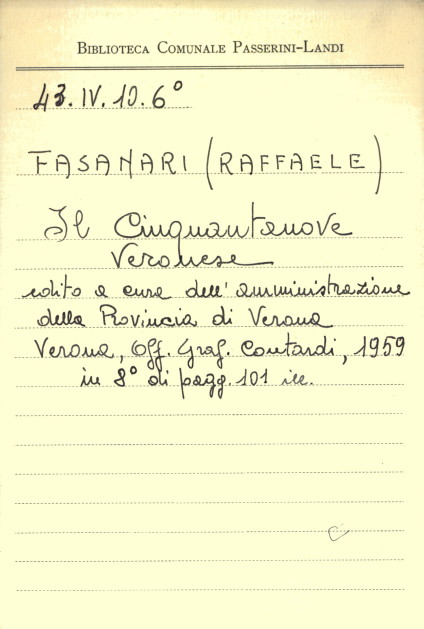 BIBLIOTECA COMUNALE PASSERINI-LANDI
43.IV.10.6°
FASANARI (RAFFAELE)
Il Cinquantanove
Veronese
edito a cura dell'amministrazione
della Provincia di Verona
Verona, Off. Graf. Contardi, 1959
in 8° di pagg. 101 ill.